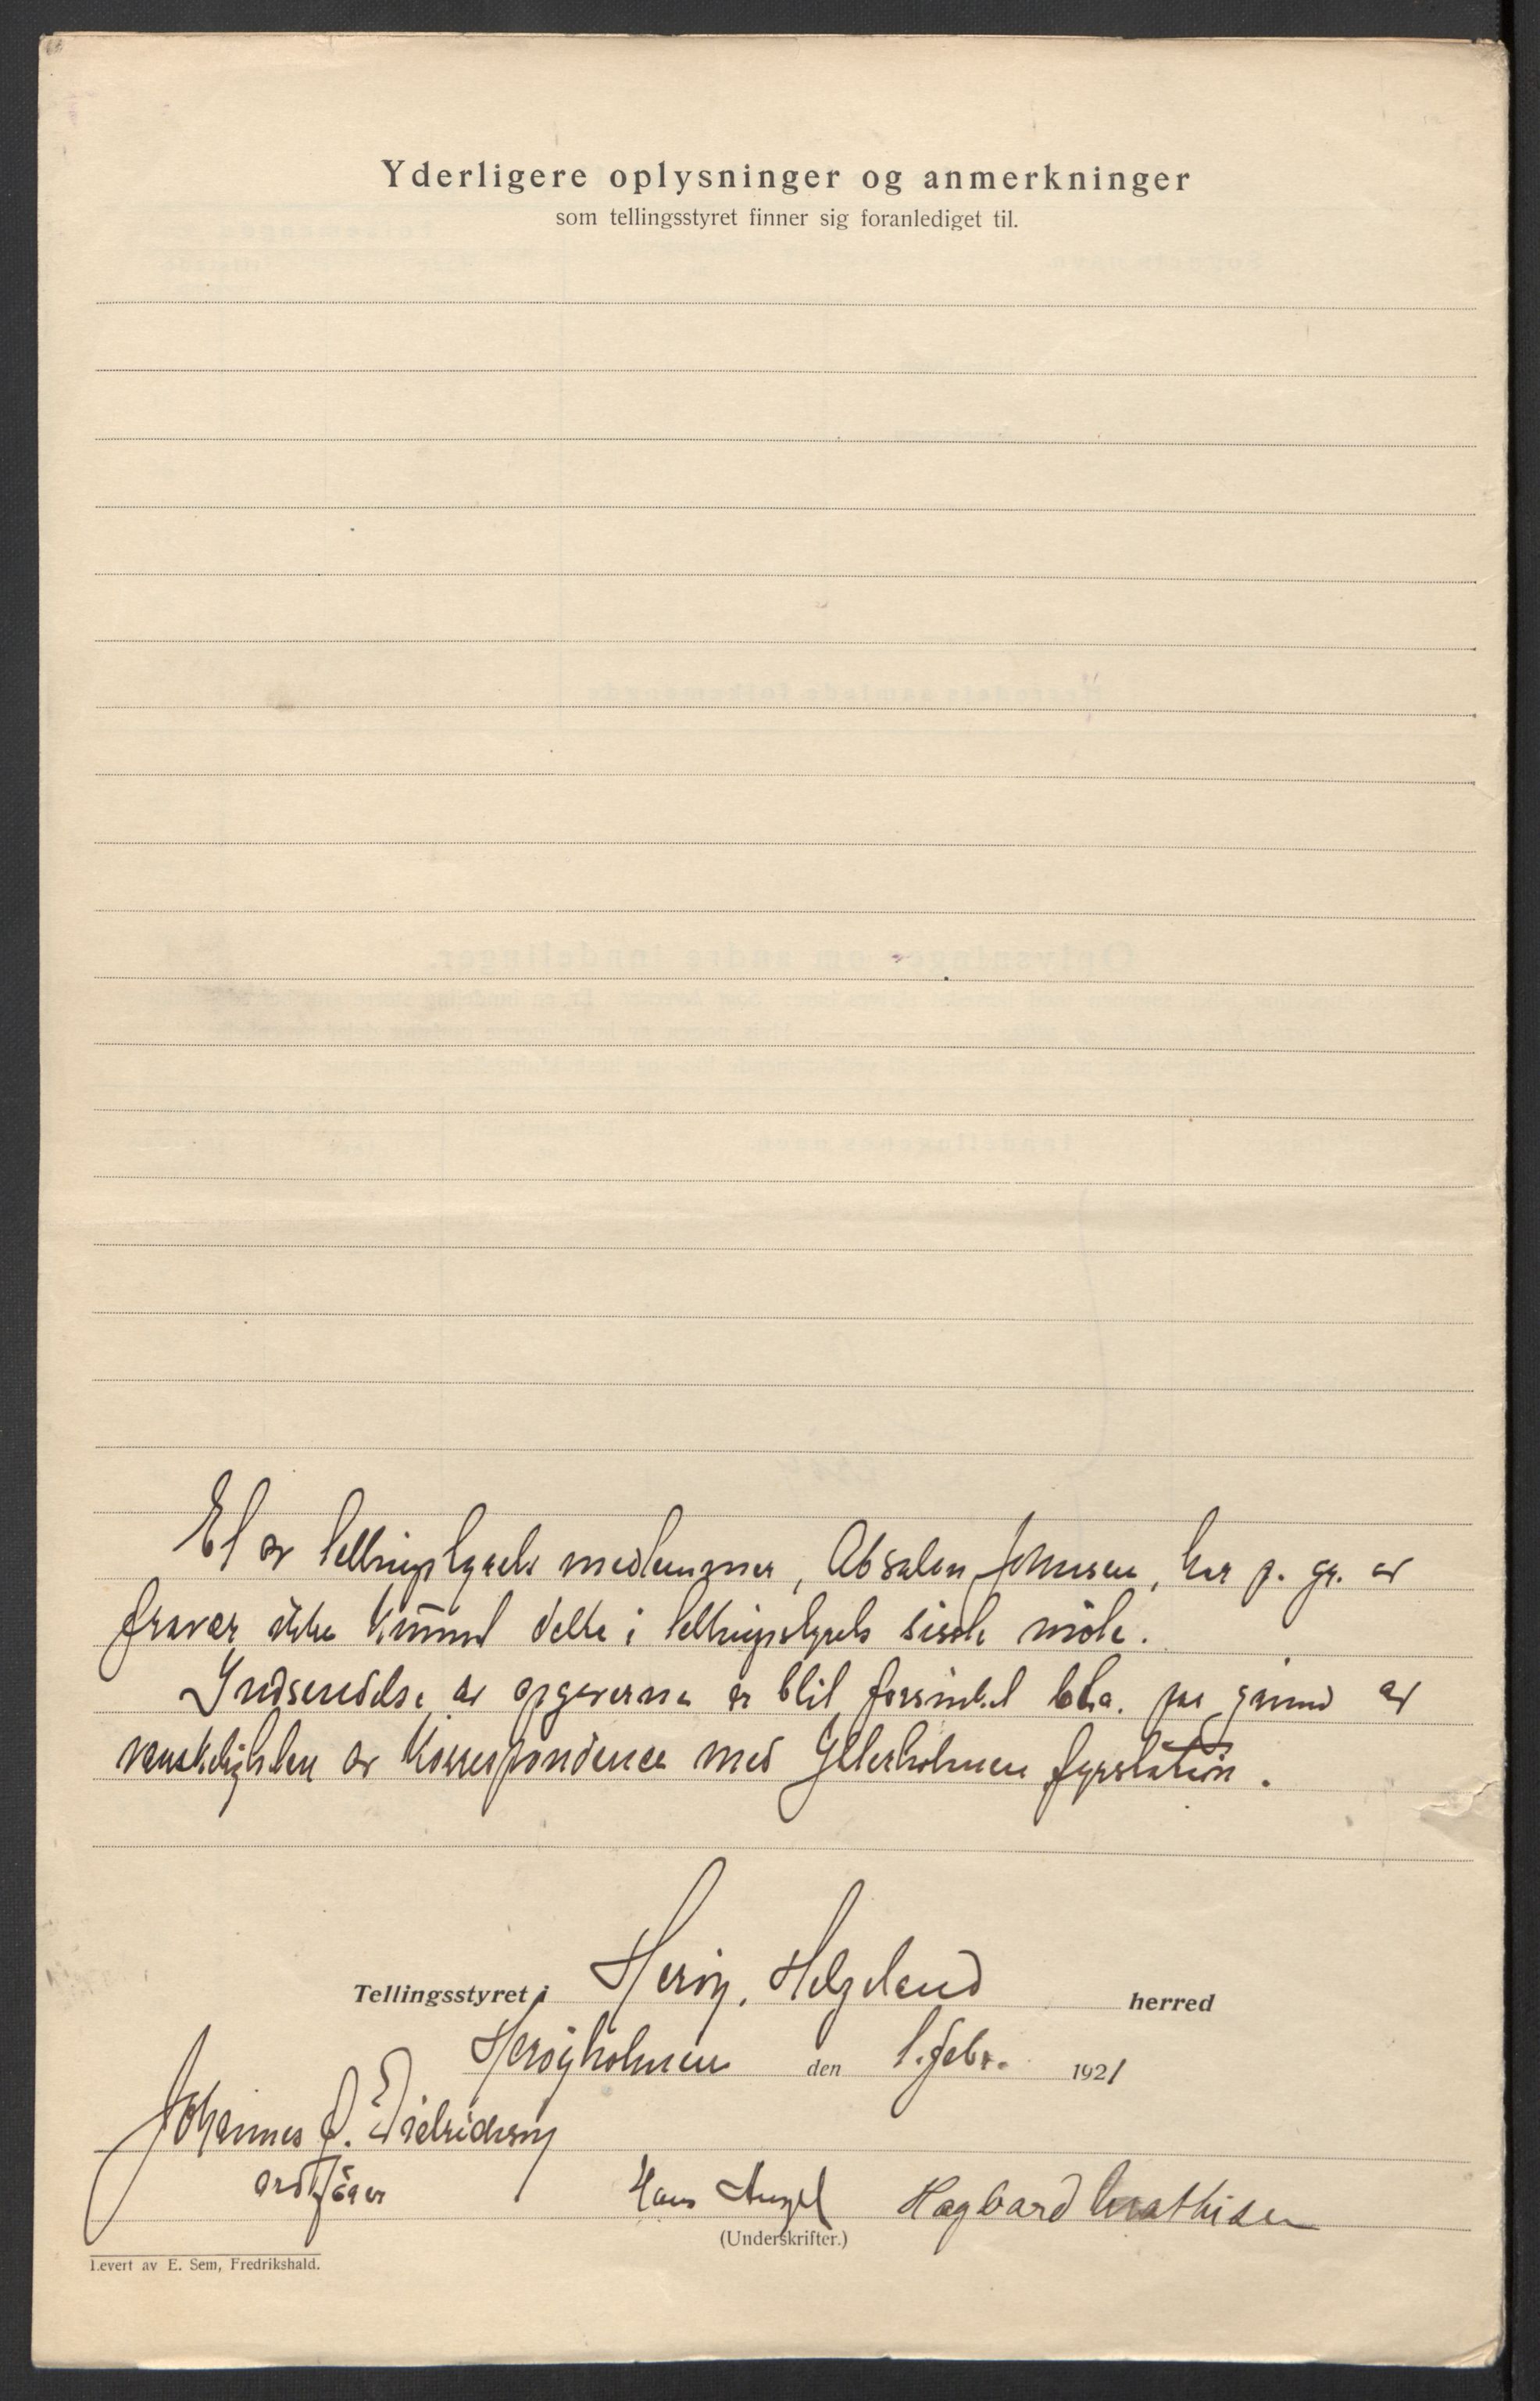 Yderligere oplysninger og anmerkninger
som tellingsstyret finner sig foranlediget til.
Et av tellingstyrets medlemmer, Absalon Johnsen, har p. gr. av
fravær ikke kunnet delta i tellingstyrets siste møte.
Indsendelse av opgaverne er blit forsinket bl.a. paa grund av
vanskeligheten av Korrespondence med Ytterholmen fyrstation.
Tellingsstyret i Herøy, Helgeland herred
Herøyholmen den 1. febr. 1921
Johannes J. Didriksen
ordfører
Hans Angel Hagbard Mathisen
(Underskrifter.)
Levert av E. Sem, Fredrikshald.